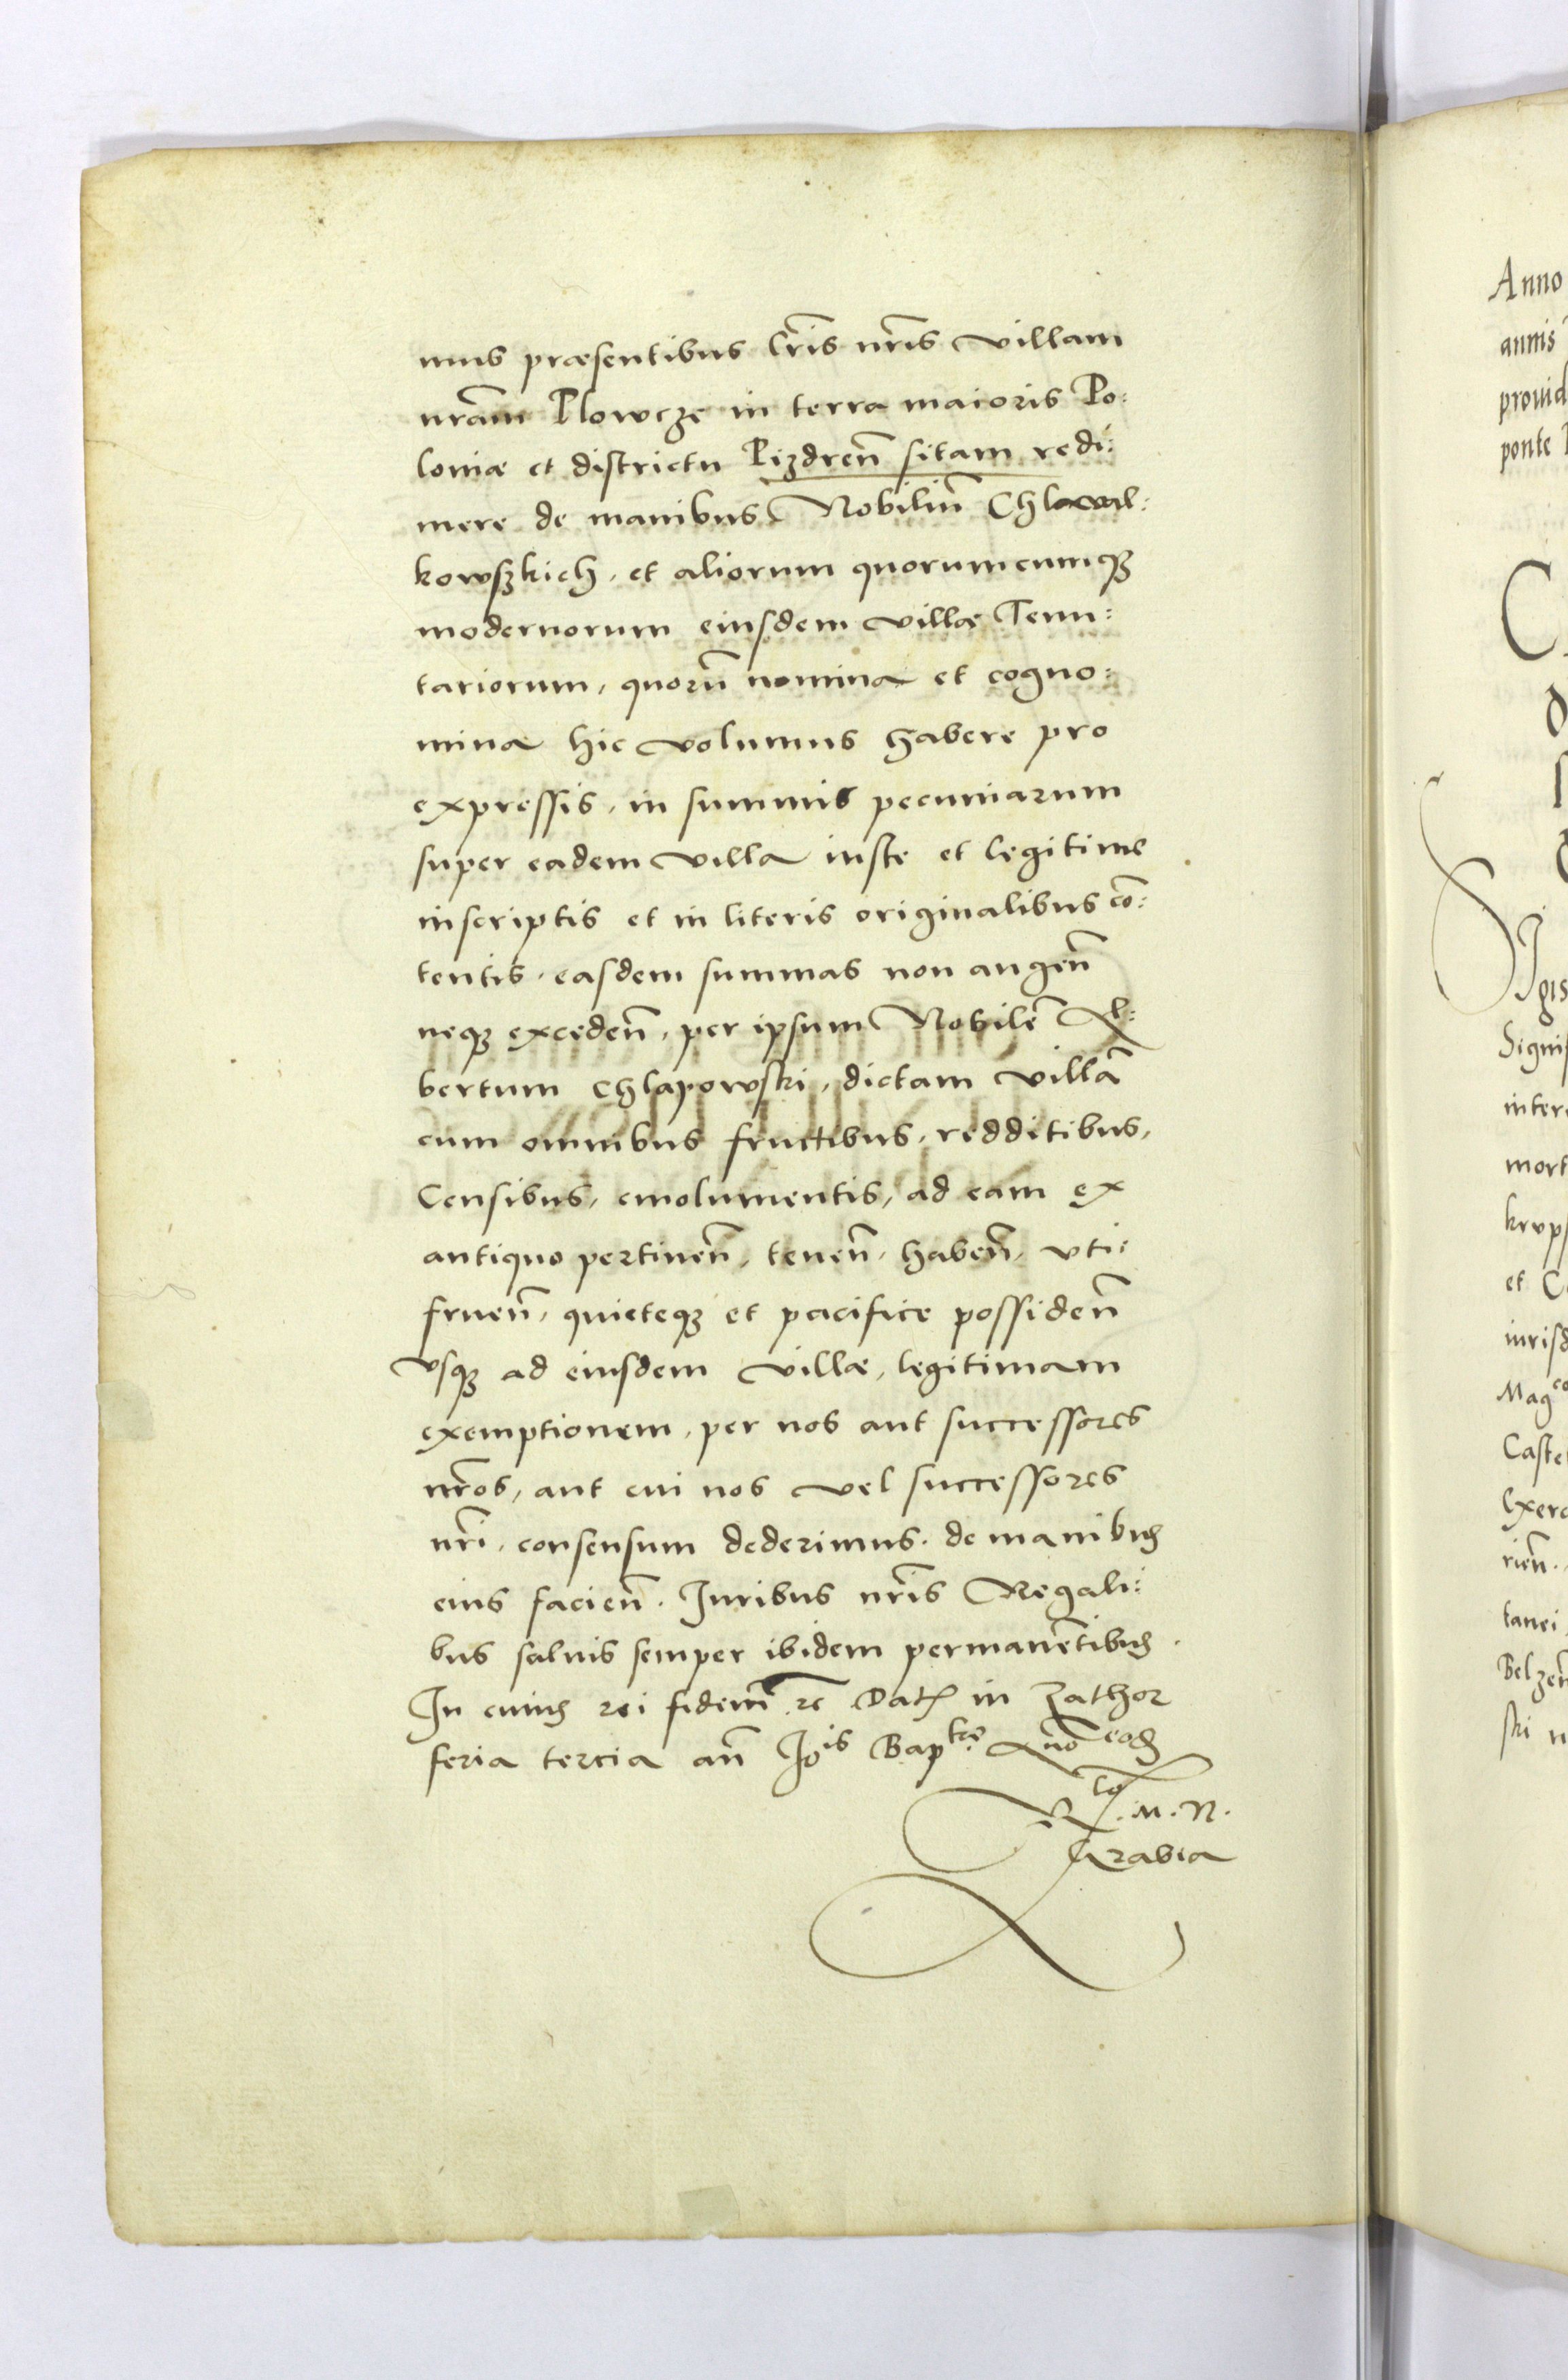 mus præsentibus lr̃is nr̃is villam
nr̃am Plowcze in terra maioris Po:
loniæ et districtu Pizdreñ sitam redi:
mere de manibus Nobiliũ Chlawal:
kowszkich, et aliorum quorumcumqꝫ
modernorum eiusdem villæ Tenu:
tariorum, quorũ nomina et cogno:
mina hic volumus habere pro
expressis, in summis pecuniarum
super eadem villa iuste et legitime
inscriptis et in literis originalibus cõ:
tentis, easdem summas non augeñ
neqꝫ excedeñ, per ipsum Nobilẽ Al:
bertum Chlapowski, dictam villã
cum omnibus fructibus, redditibus,
Censibus, emolumentis, ad eam ex
antiquo pertineñ, teneñ, habeñ, vti:
frueñ, quieteqꝫ et pacifice possideñ
vsqꝫ ad eiusdem villæ, legitimam
exemptionem, per nos aut successores
nr̃os, aut cui nos vel successores
nr̃i, consensum dederimus. de manibꝰ
eius facieñ. Iuribus nr̃is Regali:
bus saluis semper ibidem permanẽtibꝰ.
In cuiuꝰ rei fidem̃ rc̃ Datꝭ in Zathor
feria tercia añ Iois Baptæ Anõ eodꝫ
Rlo. M. R.
Krabia
Anno
annis
prouid
ponte
C
Sigis
Signif
inter
mort
krups
et C
iurisd
Magco
Caste
Exerc
rieñ.
tanei
Belzeñ
ski n